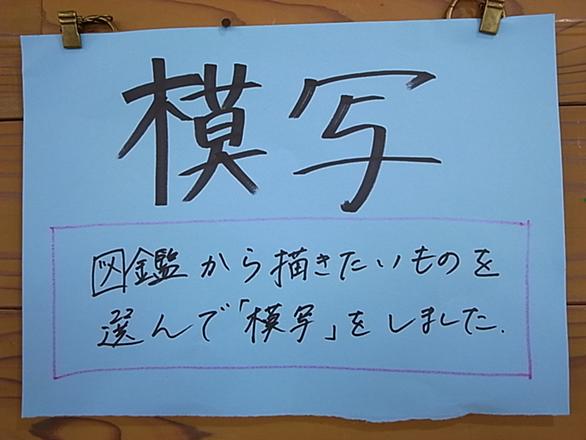 模写
図鑑から描きたいものを
選んで「模写」をしました.